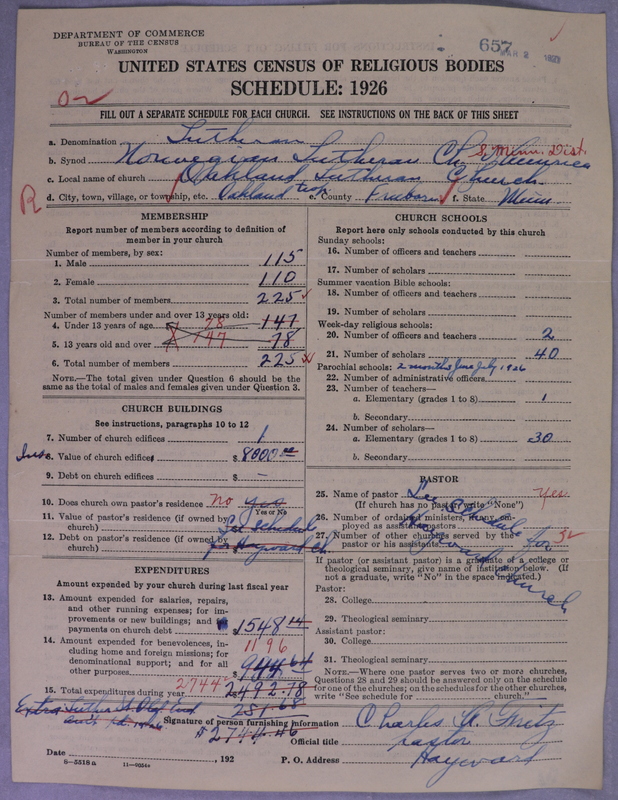 DEPARTMENT OF COMMERCE
BUREAU OF THE CENSUS
WASHINGTON
657
MAR 2 1927
UNITED STATES CENSUS OF RELIGIOUS BODIES
SCHEDULE: 1926
FILL OUT A SEPARATE SCHEDULE FOR EACH CHURCH. SEE INSTRUCTIONS ON THE BACK OF THIS SHEET
a. Denomination Lutheran
b. Synod Norwegian Lutheran Ch. America S. Minn. Dist.
c. Local name of church Oakland Lutheran Church
R
d. City, town, village, or township, etc. Oakland twp e. County Freeborn f. State Minn.
MEMBERSHIP
Report number of members according to definition of member in your church
Number of members, by sex:
1. Male 115
2. Female 110
3. Total number of members 225
Number of members under and over 13 years old:
4. Under 13 years of age 78 147
5. 13 years old and over 147 78
6. Total number of members 225
NOTE.—The total given under Question 6 should be the same as the total of males and females given under Question 3.
CHURCH BUILDINGS
See instructions, paragraphs 10 to 12
7. Number of church edifices 1
8. Value of church edifices $ 8000
9. Debt on church edifices $ -
10. Does church own pastor's residence? no yes
Yes or No
11. Value of pastor's residence (if owned by church) See Schedule
12. Debt on pastor's residence (if owned by church) for Hayward Ch
EXPENDITURES
Amount expended by your church during last fiscal year
13. Amount expended for salaries, repairs, and other running expenses; for improvements or new buildings; and for payments on church debt $ 1548 14
14. Amount expended for benevolences, including home and foreign missions; for denominational support; and for all other purposes 1196 $ 944 64
15. Total expenditures during year 2744 2492.78
251 68
$ 2744.46
Date , 192
8—5518 a
CHURCH SCHOOLS
Report here only schools conducted by this church
Sunday schools:
16. Number of officers and teachers
17. Number of scholars
Summer vacation Bible schools:
18. Number of officers and teachers
19. Number of scholars
Week-day religious schools:
20. Number of officers and teachers 2
21. Number of scholars 40
Parochial schools: 2 months June July 1926
22. Number of administrative officers
23. Number of teachers—
a. Elementary (grades 1 to 8) 1
b. Secondary
24. Number of scholars—
a. Elementary (grades 1 to 8) 30
b. Secondary
PASTOR
25. Name of pastor See Schedule for Hayward Church yes
(If church has no pastor, write "None")
26. Number of ordained ministers, if any, employed as assistant pastors
27. Number of other churches served by the pastor or his assistants
If pastor (or assistant pastor) is a graduate of a college or theological seminary, give name of institution below. (If not a graduate, write "No" in the space indicated.)
Pastor:
28. College
29. Theological seminary
Assistant pastor:
30. College
31. Theological seminary
NOTE.—Where one pastor serves two or more churches, Questions 28 and 29 should be answered only on the schedule for one of the churches; on the schedules for the other churches, write "See schedule for church."
Signature of person furnishing information
Official title pastor
P. O. Address Hayward